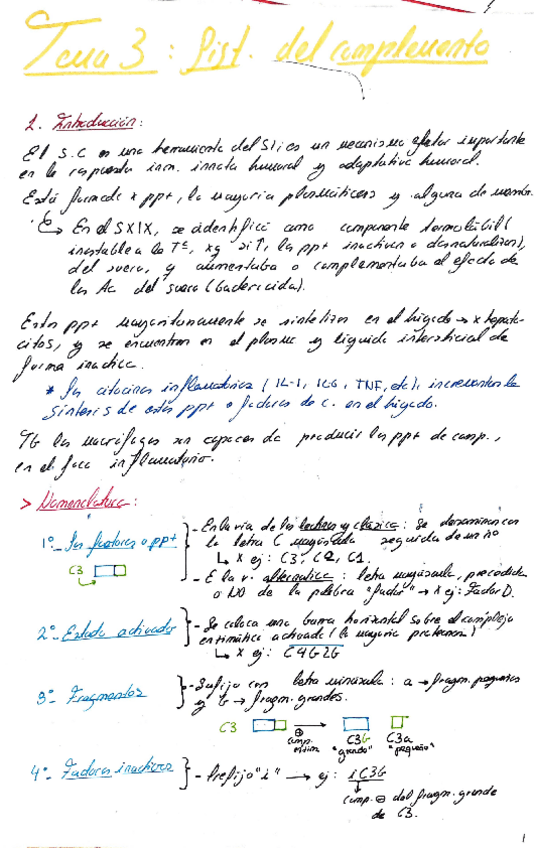 Tema 3 : Sist. del complemento
1. Introducción:
El S.C es una herramienta del SI; es un mecanismo efector importante
en la respuesta inm. innata humoral y adaptativa humoral.
Está formado x ppt, la mayoría plasmáticas y alguna de membr.
↳ En el SXIX, se identificó como componente termolábil (
inestable a la Tª, xq si ↑, las ppt inactivan o desnaturalizan),
del suero, y aumentaba o complementaba el efecto de
los Ac del suero (bactericida).
Estas ppt mayoritariamente se sintetizan en el hígado → x hepato-
citos, y se encuentran en el plasma y líquido intersticial de
forma inactiva.
* Las citocinas inflamatorias (IL-1, IL6, TNF, etc), incrementan la
síntesis de estas ppt o factores de c. en el hígado.
Tb los macrófagos son capaces de producir las ppt de comp.,
en el foco inflamatorio.
> Nomenclatura:
1º- Los factores o ppt
C3
- En la vía de las lectinas y clásica: se denominan con
la letra C mayúscula seguida de un nº
↳ x ej: C3, C2, C1.
- E la v. alternativa: letra mayúscula, precedida
o NO de la palabra "factor" → x ej: Factor D.
2º- Estado activador
- Se coloca una barra horizontal sobre el complejo
enzimático activado (la mayoría proteasas)
↳ x ej: C4b2b
3º- Fragmentos
- Sufijo con letra minúscula: a → fragm. pequeños
y b → fragm. grandes.
C3 → C3b C3a
⊕ comp.
"grande" "pequeño"
4º- Factores inactivos
- Prefijo "i" → ej: iC3b
comp. ⊖ del fragm. grande
de C3.
1